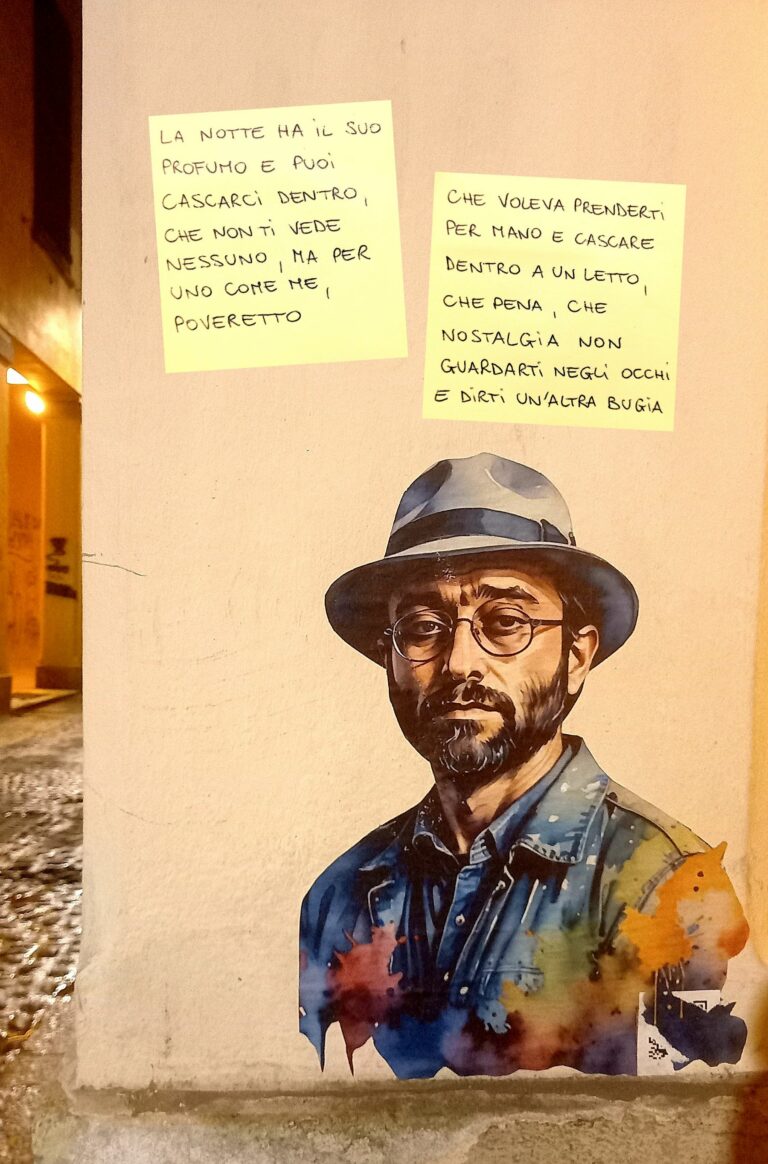 LA NOTTE HA IL SUO
PROFUMO E PUOI
CASCARCI DENTRO,
CHE NON TI VEDE
NESSUNO, MA PER
UNO COME ME,
POVERETTO
CHE VOLEVA PRENDERTI
PER MANO E CASCARE
DENTRO A UN LETTO,
CHE PENA, CHE
NOSTALGIA NON
GUARDARTI NEGLI OCCHI
E DIRTI UN'ALTRA BUGIA